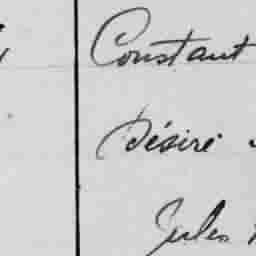 Constant
Désiré
Jules